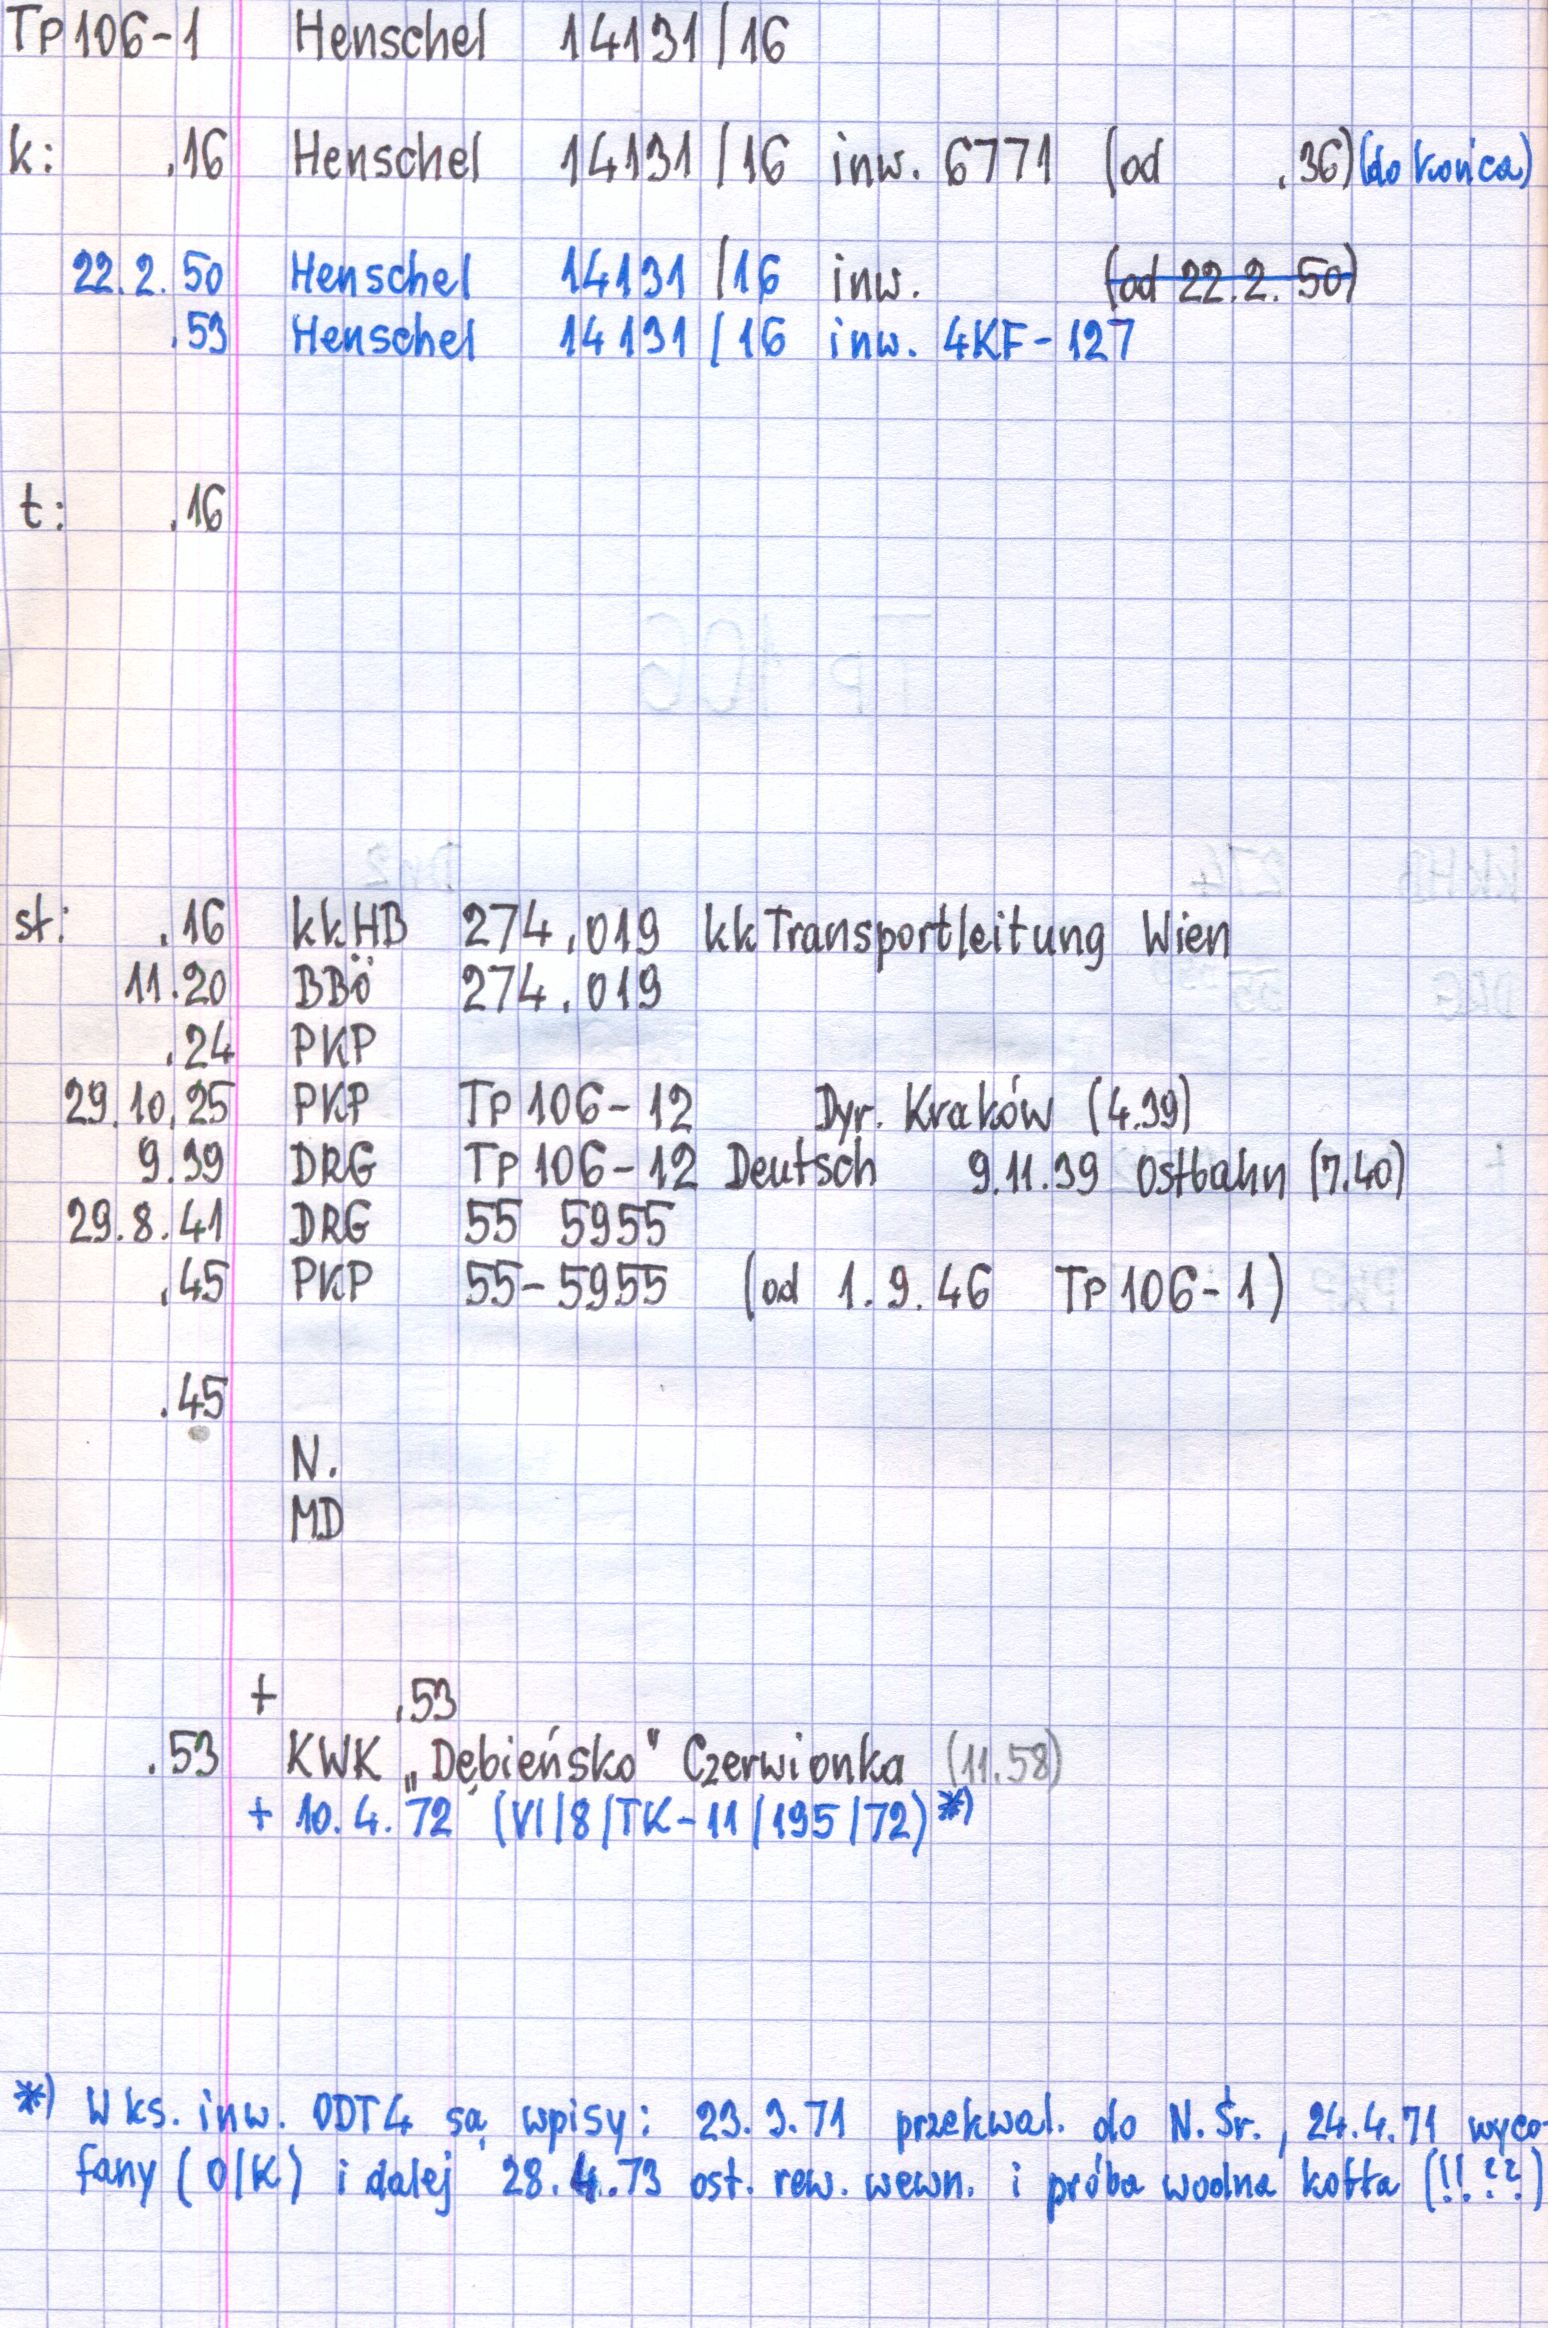 Tp106-1 Henschel 14131/16
k: .16 Henschel 14131/16 inw. 6771 (od .36) (do końca)
22.2.50 Henschel 14131/16 inw. (od 22.2.50)
.53 Henschel 14131/16 inw. 4KF-127
t: .16
st: .16 kkHB 274.019 kk Transportleitung Wien
11.20 BBÖ 274.019
.24 PKP
29.10.25 PKP Tp106-12 Dyr. Kraków (4.39)
9.39 DRG Tp106-12 Deutsch 9.11.39 Ostbahn (7.40)
29.8.41 DRG 55 5955
.45 PKP 55-5955 (od 1.9.46 Tp106-1)
.45
N.
MD
+ .53
.53 KWK „Dębieńsko" Czerwionka (11.58)
+ 10.4.72 (VI/8/TK-11/195/72) *)
*) W ks. inw. ODT4 są wpisy: 23.3.71 przekwal. do N.Śr., 24.4.71 wyco-
fany (O/K) i dalej 28.4.73 ost. rew. wewn. i próba wodna kotła (!!??)